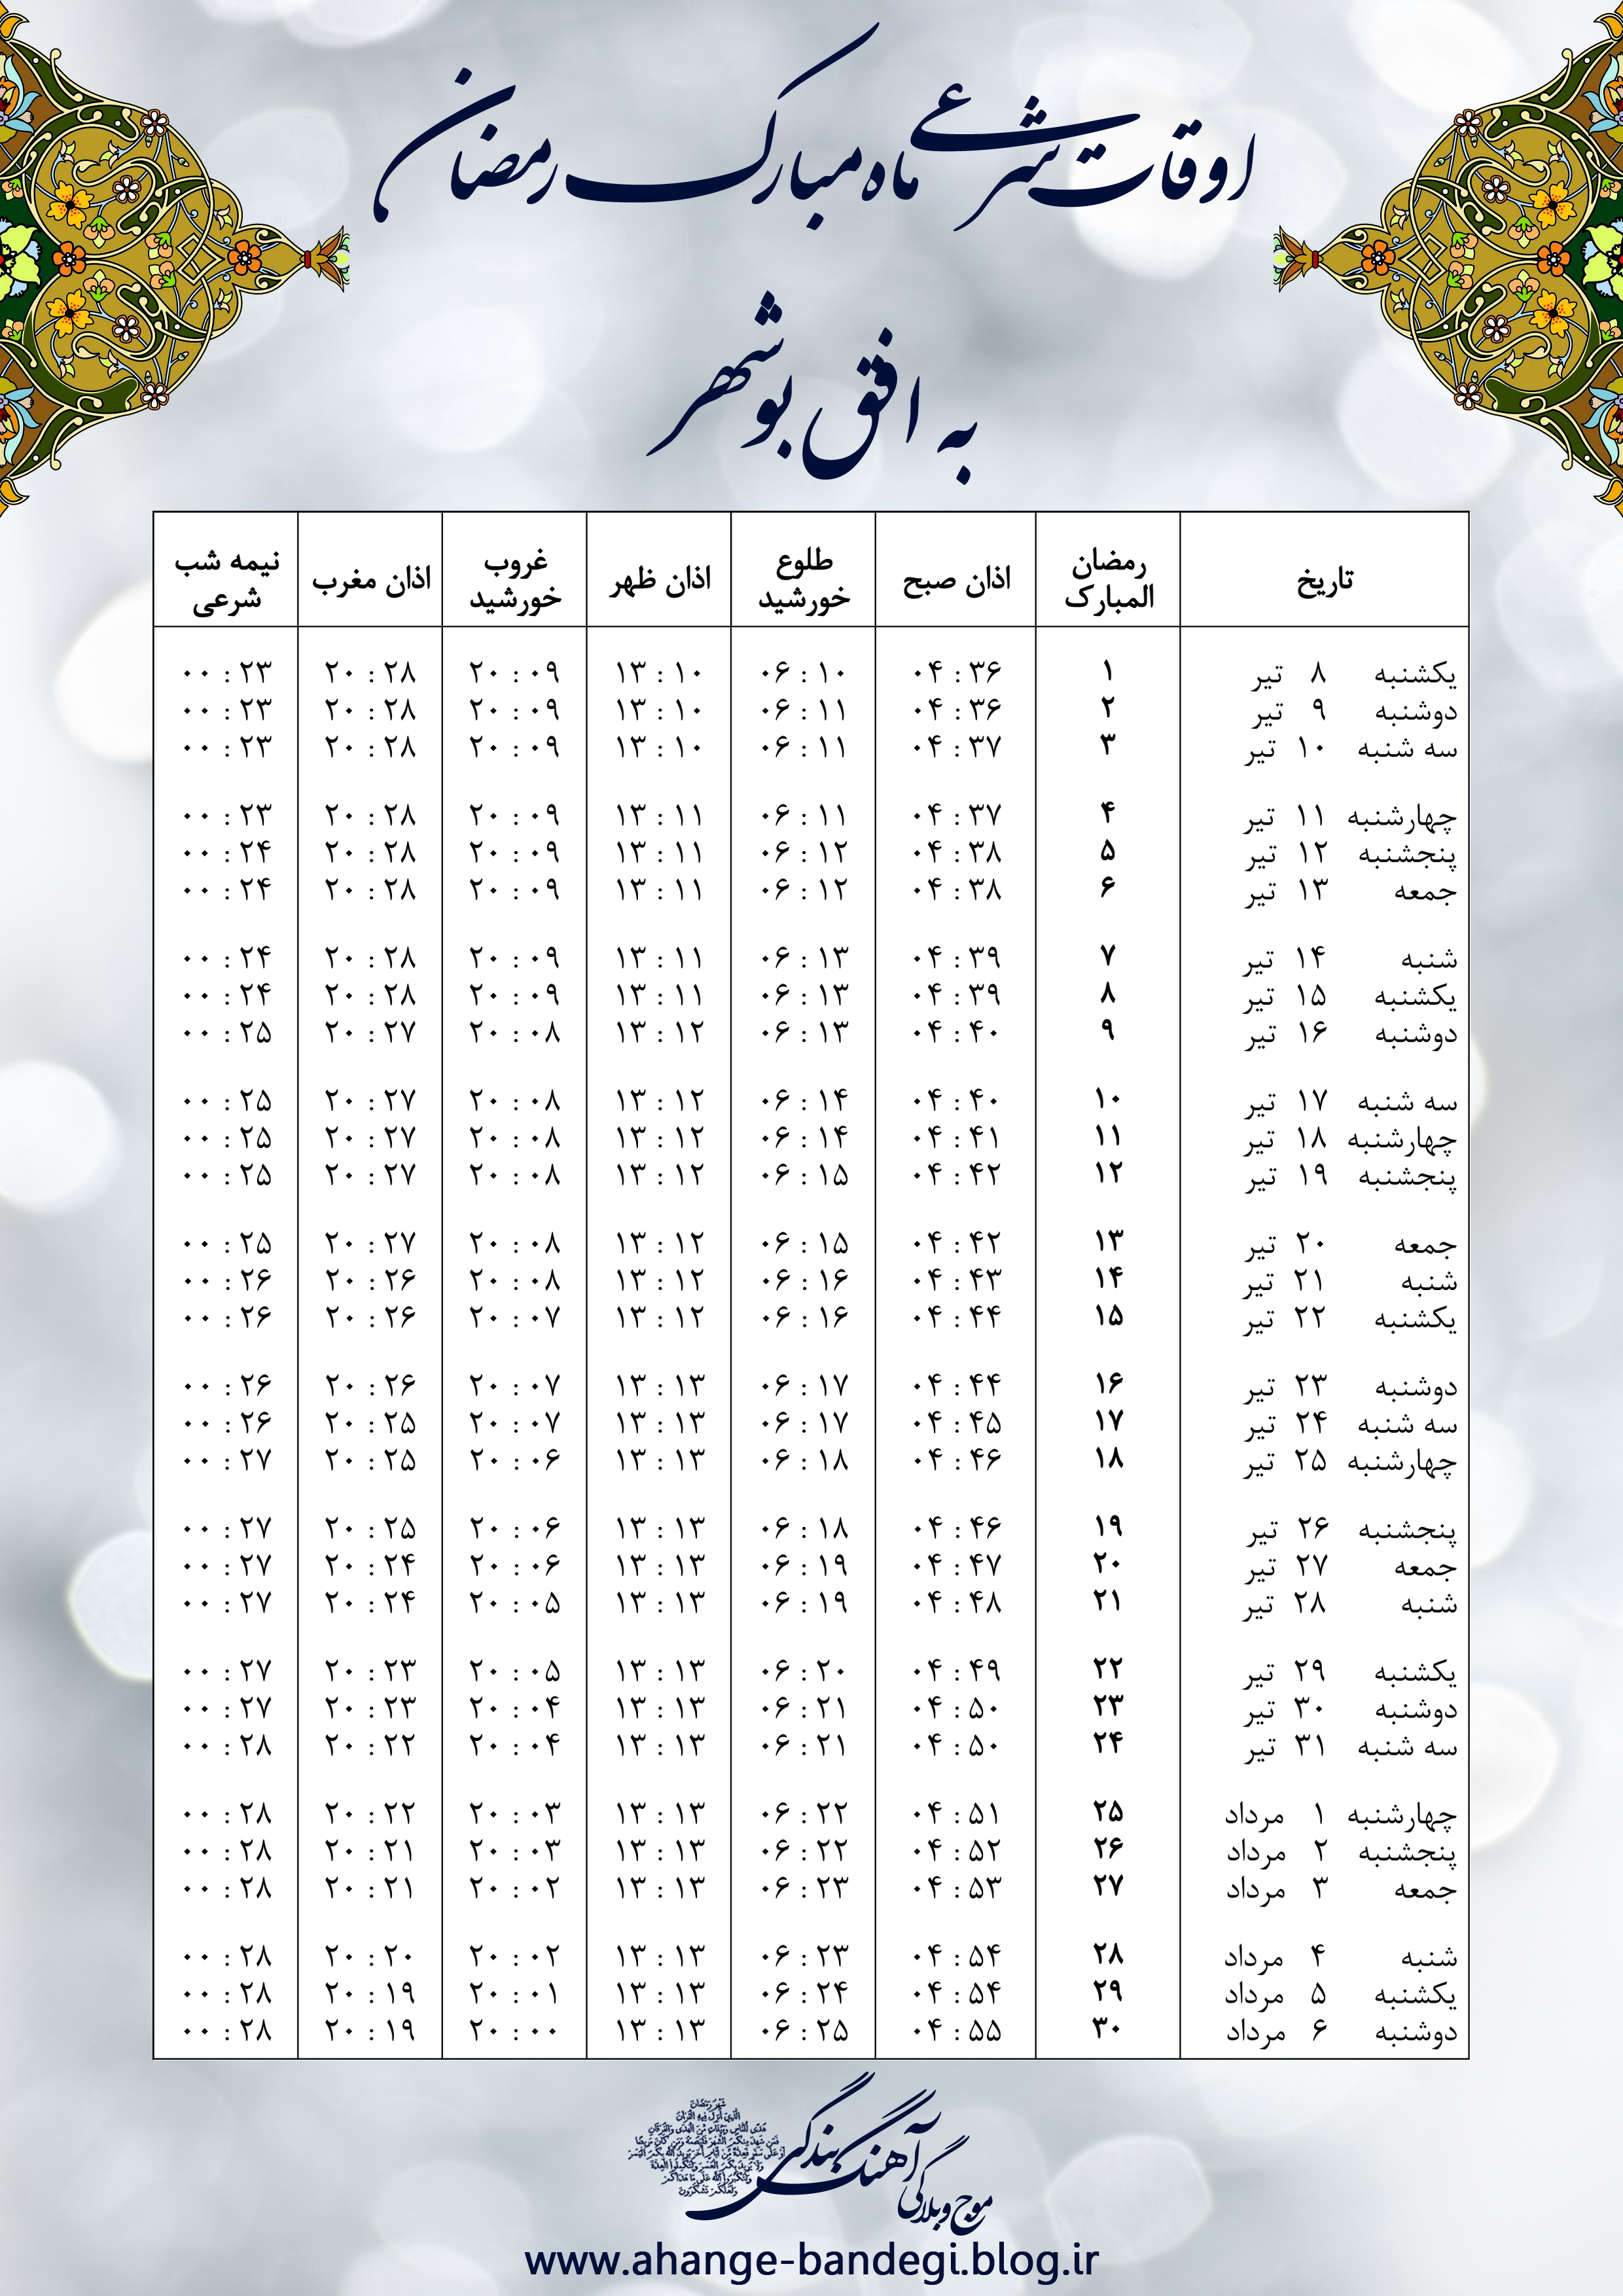 اوقات شرعی ماه مبارک رمضان
به افق بوشهر
تاریخ رمضان المبارک اذان صبح طلوع خورشید اذان ظهر غروب خورشید اذان مغرب نیمه شب شرعی
یکشنبه ۸ تیر ۱ ۰۴:۳۶ ۰۶:۱۰ ۱۳:۱۰ ۲۰:۰۹ ۲۰:۲۸ ۰۰:۲۳
دوشنبه ۹ تیر ۲ ۰۴:۳۶ ۰۶:۱۱ ۱۳:۱۰ ۲۰:۰۹ ۲۰:۲۸ ۰۰:۲۳
سه شنبه ۱۰ تیر ۳ ۰۴:۳۷ ۰۶:۱۱ ۱۳:۱۰ ۲۰:۰۹ ۲۰:۲۸ ۰۰:۲۳
چهارشنبه ۱۱ تیر ۴ ۰۴:۳۷ ۰۶:۱۱ ۱۳:۱۱ ۲۰:۰۹ ۲۰:۲۸ ۰۰:۲۳
پنجشنبه ۱۲ تیر ۵ ۰۴:۳۸ ۰۶:۱۲ ۱۳:۱۱ ۲۰:۰۹ ۲۰:۲۸ ۰۰:۲۴
جمعه ۱۳ تیر ۶ ۰۴:۳۸ ۰۶:۱۲ ۱۳:۱۱ ۲۰:۰۹ ۲۰:۲۸ ۰۰:۲۴
شنبه ۱۴ تیر ۷ ۰۴:۳۹ ۰۶:۱۳ ۱۳:۱۱ ۲۰:۰۹ ۲۰:۲۸ ۰۰:۲۴
یکشنبه ۱۵ تیر ۸ ۰۴:۳۹ ۰۶:۱۳ ۱۳:۱۱ ۲۰:۰۹ ۲۰:۲۸ ۰۰:۲۴
دوشنبه ۱۶ تیر ۹ ۰۴:۴۰ ۰۶:۱۳ ۱۳:۱۲ ۲۰:۰۸ ۲۰:۲۷ ۰۰:۲۵
سه شنبه ۱۷ تیر ۱۰ ۰۴:۴۰ ۰۶:۱۴ ۱۳:۱۲ ۲۰:۰۸ ۲۰:۲۷ ۰۰:۲۵
چهارشنبه ۱۸ تیر ۱۱ ۰۴:۴۱ ۰۶:۱۴ ۱۳:۱۲ ۲۰:۰۸ ۲۰:۲۷ ۰۰:۲۵
پنجشنبه ۱۹ تیر ۱۲ ۰۴:۴۲ ۰۶:۱۵ ۱۳:۱۲ ۲۰:۰۸ ۲۰:۲۷ ۰۰:۲۵
جمعه ۲۰ تیر ۱۳ ۰۴:۴۲ ۰۶:۱۵ ۱۳:۱۲ ۲۰:۰۸ ۲۰:۲۷ ۰۰:۲۵
شنبه ۲۱ تیر ۱۴ ۰۴:۴۳ ۰۶:۱۶ ۱۳:۱۲ ۲۰:۰۸ ۲۰:۲۶ ۰۰:۲۶
یکشنبه ۲۲ تیر ۱۵ ۰۴:۴۴ ۰۶:۱۶ ۱۳:۱۲ ۲۰:۰۷ ۲۰:۲۶ ۰۰:۲۶
دوشنبه ۲۳ تیر ۱۶ ۰۴:۴۴ ۰۶:۱۷ ۱۳:۱۳ ۲۰:۰۷ ۲۰:۲۶ ۰۰:۲۶
سه شنبه ۲۴ تیر ۱۷ ۰۴:۴۵ ۰۶:۱۷ ۱۳:۱۳ ۲۰:۰۷ ۲۰:۲۵ ۰۰:۲۶
چهارشنبه ۲۵ تیر ۱۸ ۰۴:۴۶ ۰۶:۱۸ ۱۳:۱۳ ۲۰:۰۶ ۲۰:۲۵ ۰۰:۲۷
پنجشنبه ۲۶ تیر ۱۹ ۰۴:۴۶ ۰۶:۱۸ ۱۳:۱۳ ۲۰:۰۶ ۲۰:۲۵ ۰۰:۲۷
جمعه ۲۷ تیر ۲۰ ۰۴:۴۷ ۰۶:۱۹ ۱۳:۱۳ ۲۰:۰۶ ۲۰:۲۴ ۰۰:۲۷
شنبه ۲۸ تیر ۲۱ ۰۴:۴۸ ۰۶:۱۹ ۱۳:۱۳ ۲۰:۰۵ ۲۰:۲۴ ۰۰:۲۷
یکشنبه ۲۹ تیر ۲۲ ۰۴:۴۹ ۰۶:۲۰ ۱۳:۱۳ ۲۰:۰۵ ۲۰:۲۳ ۰۰:۲۷
دوشنبه ۳۰ تیر ۲۳ ۰۴:۵۰ ۰۶:۲۱ ۱۳:۱۳ ۲۰:۰۴ ۲۰:۲۳ ۰۰:۲۷
سه شنبه ۳۱ تیر ۲۴ ۰۴:۵۰ ۰۶:۲۱ ۱۳:۱۳ ۲۰:۰۴ ۲۰:۲۲ ۰۰:۲۸
چهارشنبه ۱ مرداد ۲۵ ۰۴:۵۱ ۰۶:۲۲ ۱۳:۱۳ ۲۰:۰۳ ۲۰:۲۲ ۰۰:۲۸
پنجشنبه ۲ مرداد ۲۶ ۰۴:۵۲ ۰۶:۲۲ ۱۳:۱۳ ۲۰:۰۳ ۲۰:۲۱ ۰۰:۲۸
جمعه ۳ مرداد ۲۷ ۰۴:۵۳ ۰۶:۲۳ ۱۳:۱۳ ۲۰:۰۲ ۲۰:۲۱ ۰۰:۲۸
شنبه ۴ مرداد ۲۸ ۰۴:۵۴ ۰۶:۲۳ ۱۳:۱۳ ۲۰:۰۲ ۲۰:۲۰ ۰۰:۲۸
یکشنبه ۵ مرداد ۲۹ ۰۴:۵۴ ۰۶:۲۴ ۱۳:۱۳ ۲۰:۰۱ ۲۰:۱۹ ۰۰:۲۸
دوشنبه ۶ مرداد ۳۰ ۰۴:۵۵ ۰۶:۲۵ ۱۳:۱۳ ۲۰:۰۰ ۲۰:۱۹ ۰۰:۲۸
موج وبلاگی آهنگ بندگی
www.ahange-bandegi.blog.ir